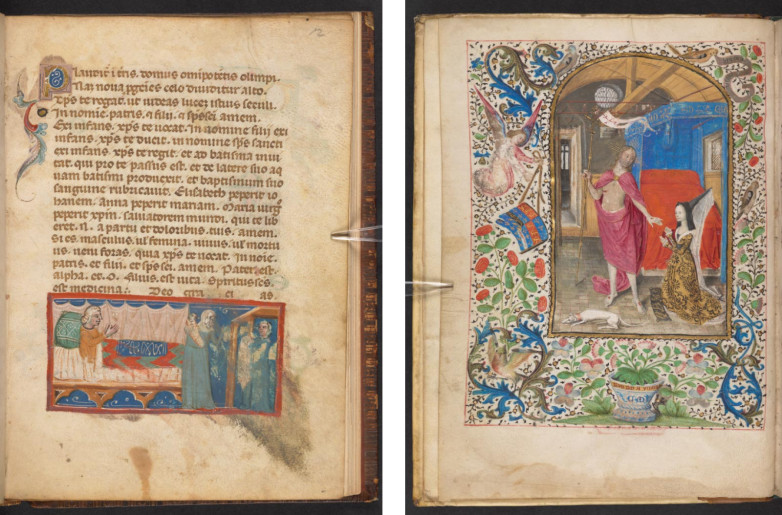 12
Plaudit i ēris. domus omīpotēns olimpi.
Nā nova pgeīes celo dimittitur alto.
xp̄s te regat. ut uideas lucē istius seculi.
In nomīe. patris. ⁊ filij. ⁊ sp̄s sc̄i. amem.
Exi infans. xp̄s te uocat. In nomine filij exi
infans. xp̄s te ducit. in nomine sp̄s sancti
exi infans. xp̄s te regit. et ad batisma inui
tat. qui pro te passus est. et de latere suo aq
uam batismi produxerit. et baptismum suo
sanguine rubricauit. Elisabeth peperit io
hanem. Anna peperit mariam. Maria uirḡ
peperit xpm̄. sauuatorem mundi. qui te lib
eret. N. a partu et doloribus tuis. amem.
Si es masculus. ul' femina. uiuus. ul' mortu
us. ueni foras. quia xp̄s te uocat. In noīe.
patris. et filij. et sp̄s sc̄i. amem. Pater est
alpha. et. o. filius. est uita. Spiritus sc̄s.
est medicina. Deo gra ci as.